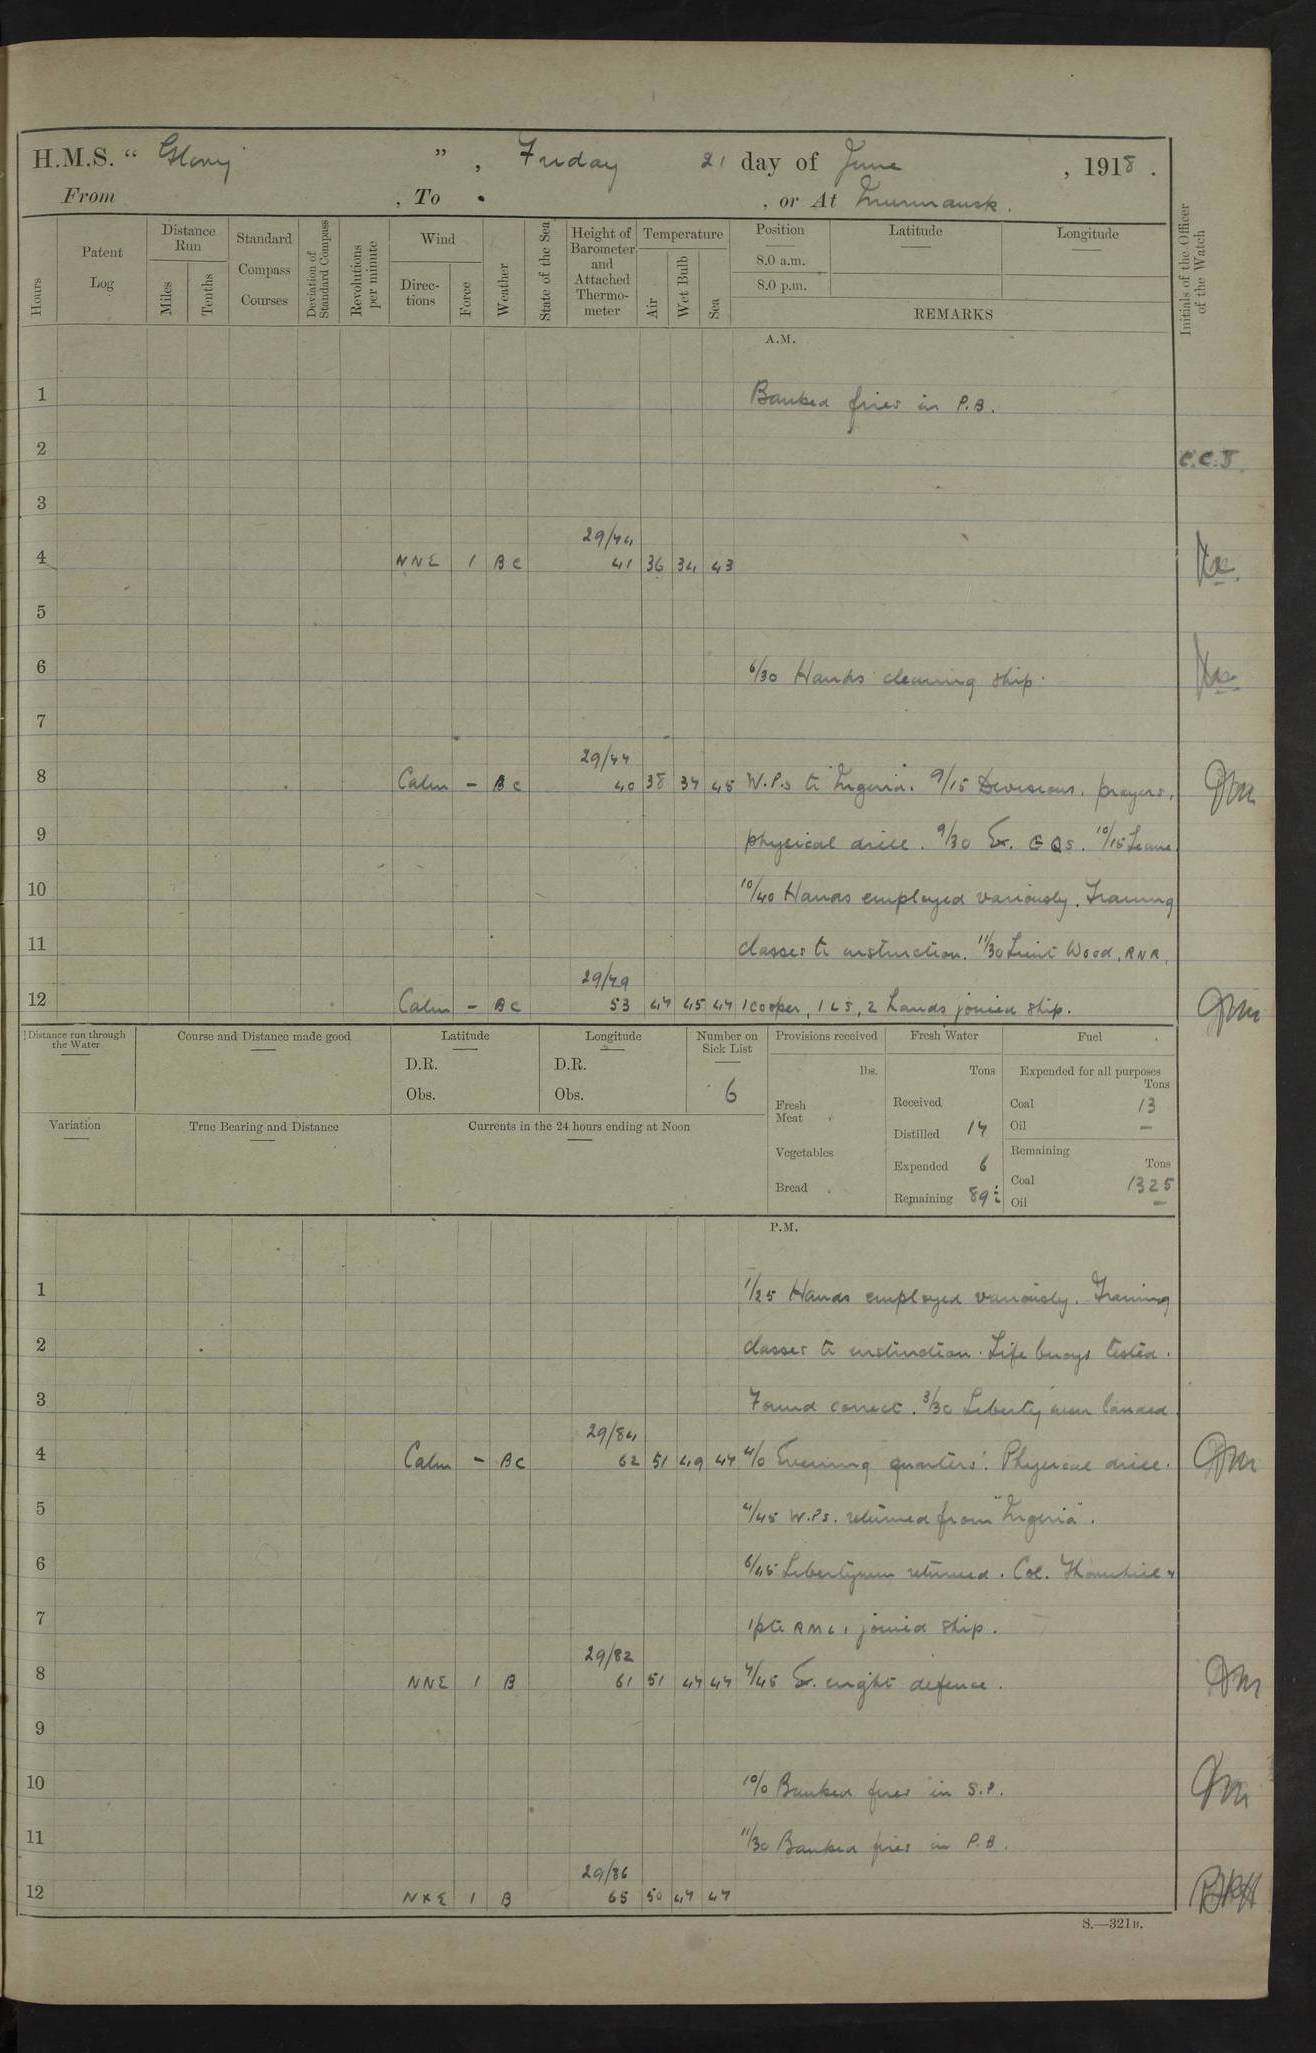 H.M.S. “ Glory ” , Friday 21 day of June , 1918 .
From , To , or At Murmansk.
Hours
Patent Log
Distance Run
Miles
Tenths
Standard Compass Courses
Deviation of Standard Compass
Revolutions per minute
Wind
Direc-tions
Force
Weather
State of the Sea
Height of Barometer and Attached Thermo-meter
Temperature
Air
Wet Bulb
Sea
Position
8.0 a.m.
8.0 p.m.
Latitude
Longitude
REMARKS
Initials of the Officer of the Watch
A.M.
1 Banked fires in P.B.
2 C.C.J.
3
29/44
4 NNE 1 BC 41 36 34 43
5
6 6/30 Hands cleaning ship.
7
29/44
8 Calm - BC 40 38 37 45 W.P.s to "Nigeria". 9/15 Divisions. prayers,
9 physical drill. 9/30 Ex. GQS. 10/15 Leave
10 10/40 Hands employed variously. Training
11 classes to instruction. 11/30 Lieut Wood, RNR,
29/79
12 Calm - BC 53 47 45 47 1 cooper, 1 LS, 2 hands joined ship.
Distance run through the Water
Course and Distance made good
Latitude
D.R.
Obs.
Longitude
D.R.
Obs.
Number on Sick List
6
Provisions received
lbs.
Fresh Meat
Vegetables
Bread
Fresh Water
Tons
Received
Distilled 17
Expended 6
Remaining 89½
Fuel
Expended for all purposes
Tons
Coal 13
Oil —
Remaining
Tons
Coal 1325
Oil —
Variation
True Bearing and Distance
Currents in the 24 hours ending at Noon
P.M.
1 1/25 Hands employed variously. Training
2 classes to instruction. Life buoys tested.
3 Found correct. 3/30 Liberty men landed.
29/84
4 Calm - BC 62 51 49 47 4/0 Evening quarters. Physical drill.
5 4/45 W.P.s. returned from "Nigeria".
6 6/45 Libertymen returned. Col. Thornhill &
7 1 pte RMLI joined ship.
29/82
8 NNE 1 B 61 51 47 47 7/45 Ex. night defence.
9
10 10/0 Banked fires in S.P.
11 11/30 Banked fires in P.B.
29/86
12 NxE 1 B 65 50 47 47
S.—321B.